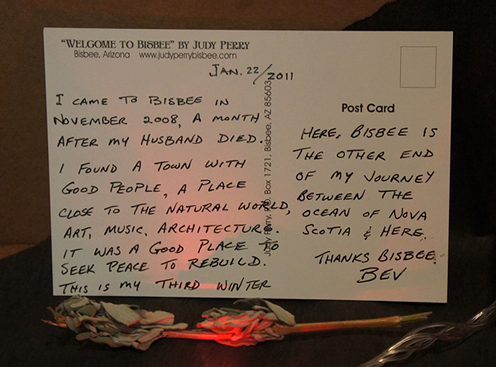 "WELCOME TO BISBEE" BY JUDY PERRY
Bisbee, Arizona www.judyperrybisbee.com
JAN. 22/2011
I CAME TO BISBEE IN
NOVEMBER 2008, A MONTH
AFTER MY HUSBAND DIED.
I FOUND A TOWN WITH
GOOD PEOPLE, A PLACE
CLOSE TO THE NATURAL WORLD,
ART, MUSIC, ARCHITECTURE.
IT WAS A GOOD PLACE TO
SEEK PEACE TO REBUILD.
THIS IS MY THIRD WINTER
Judy Perry, Box 1721, Bisbee, AZ 85603
Post Card
HERE, BISBEE IS
THE OTHER END
OF MY JOURNEY
BETWEEN THE
OCEAN OF NOVA
SCOTIA & HERE.
THANKS BISBEE.
BEV